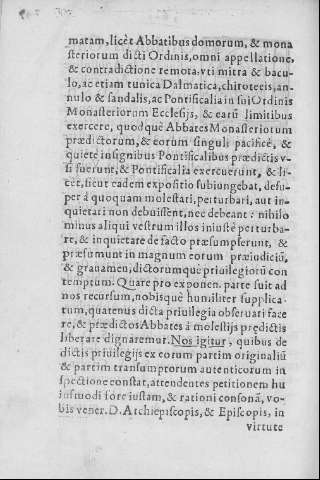 matam, licèt Abbatibus domorum, & mona
steriorum dicti Ordinis, omni appellatione,
& contradictione remota. vti mitra & bacu-
lo, ac etiam tunica Dalmatica, chirotecis, an-
nulo & sandalis, ac Pontificalia in sui Ordinis
Monasteriorum Ecclesijs, & earū limitibus
exercere, quodquè Abbates Monasteriorum
prædictorum, & eorum singuli pacificè, &
quietè insignibus Pontificalibus prædictis v-
si fuerunt, & Pontificalia exercuerunt, & li-
cèt, sicut eadem expositio subiungebat, desu-
per á quoquam molestari, perturbari, aut in-
quietari non debuissent, nec debeant: nihilo
minus aliqui vestrum illos iniustè perturba-
re, & inquietare de facto præsumpserunt, &
præsumunt in magnum eorum præiudiciū,
& grauamen, dictorumquè priuilegiorū con
temptum. Quare pro exponen. parte suit ad
nos recursum, nobisquè humiliter supplica-
tum, quatenus dicta priuilegia obseruari face
re, & prædictos Abbates á molestijs prędictis
liberare dignaremur. Nos igitur, quibus de
dictis priuilegijs ex eorum partim originaliū
& partim transumptorum autenticorum in
spectione constat, attendentes petitionem hu
iusmodi fore iustam, & rationi consonā, vo-
bis vener. D. Archiepiscopis, & Episcopis, in
virtute